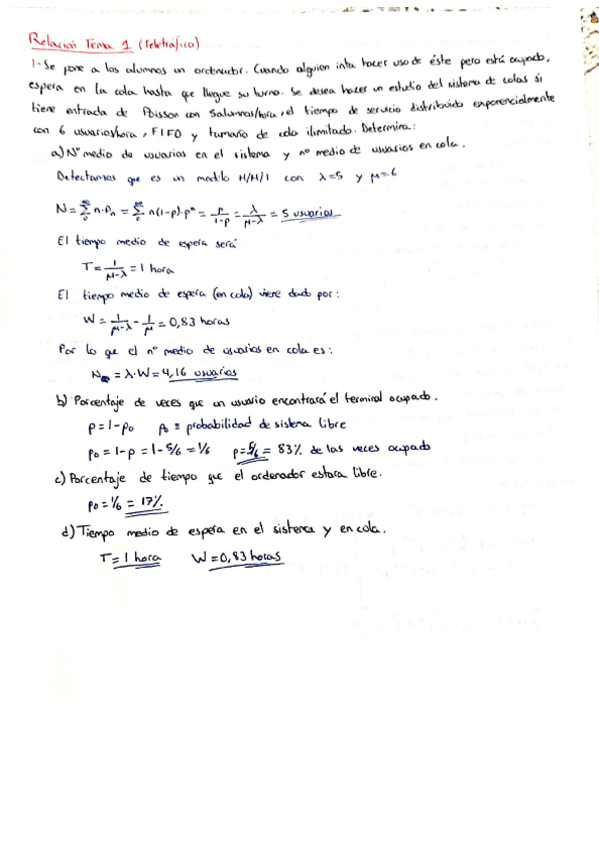 Relación Tema 1 (Teletráfico)
1- Se pone a los alumnos un ordenador. Cuando alguien inta hacer uso de éste pero está ocupado,
espera en la cola hasta que llegue su turno. Se desea hacer un estudio del sistema de colas si
tiene entrada de Poisson con 5alumnos/hora, el tiempo de servicio distribuido exponencialmente
con 6 usuarios/hora, FIFO y tamaño de cola ilimitado. Determina:
a) Nº medio de usuarios en el sistema y nº medio de usuarios en cola.
Detectamos que es un modelo M/M/1 con λ=5 y μ=6
N = ∑₀^∞ n·Pn = ∑₀^∞ n(1-ρ)·ρⁿ = ρ/(1-ρ) = λ/(μ-λ) = 5 usuarios
El tiempo medio de espera será
T = 1/(μ-λ) = 1 hora
El tiempo medio de espera (en cola) viene dado por:
W = 1/(μ-λ) - 1/μ = 0,83 horas
Por lo que el nº medio de usuarios en cola es:
= λ·W = 4,16 usuarios
b) Porcentaje de veces que un usuario encontrará el terminal ocupado.
ρ = 1-p₀ p₀ ≡ probabilidad de sistema libre
p₀ = 1-ρ = 1-5/6 = 1/6 ρ = 5/6 = 83% de las veces ocupado
c) Porcentaje de tiempo que el ordenador estara libre.
p₀ = 1/6 = 17%.
d) Tiempo medio de espera en el sistema y en cola.
T = 1 hora W = 0,83 horas